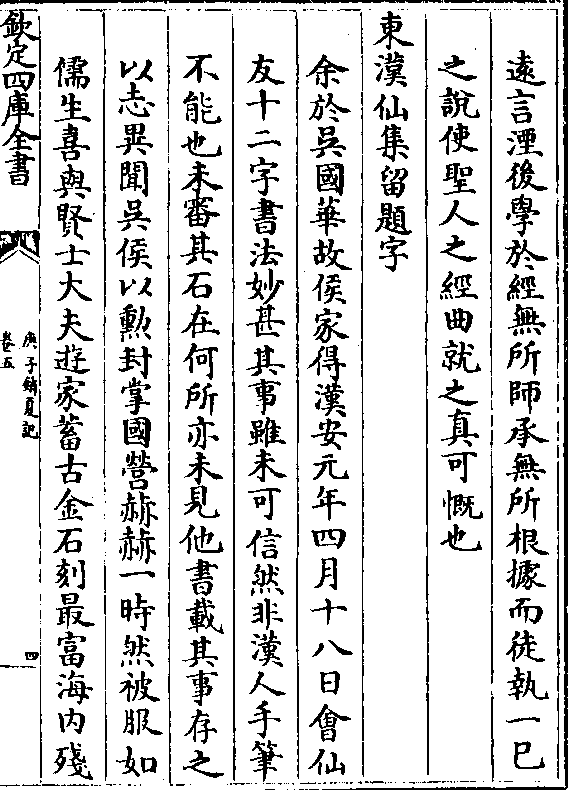 遠言湮後學於經無所師承無所根據而徒執一已
之說使聖人之經曲就之真可慨也
東漢仙集留題字
余於吳國華故侯家得漢安元年四月十八日會仙
友十二字書法妙甚其事雖未可信然非漢人手筆
不能也未審其石在何所亦未見他書載其事存之
以志異聞吳侯以勲封掌國營赫赫一時然被服如
儒生喜與賢士大夫遊家蓄古金石刻最富海内殘
欽定四庫全書
庚子銷夏記
卷五
四